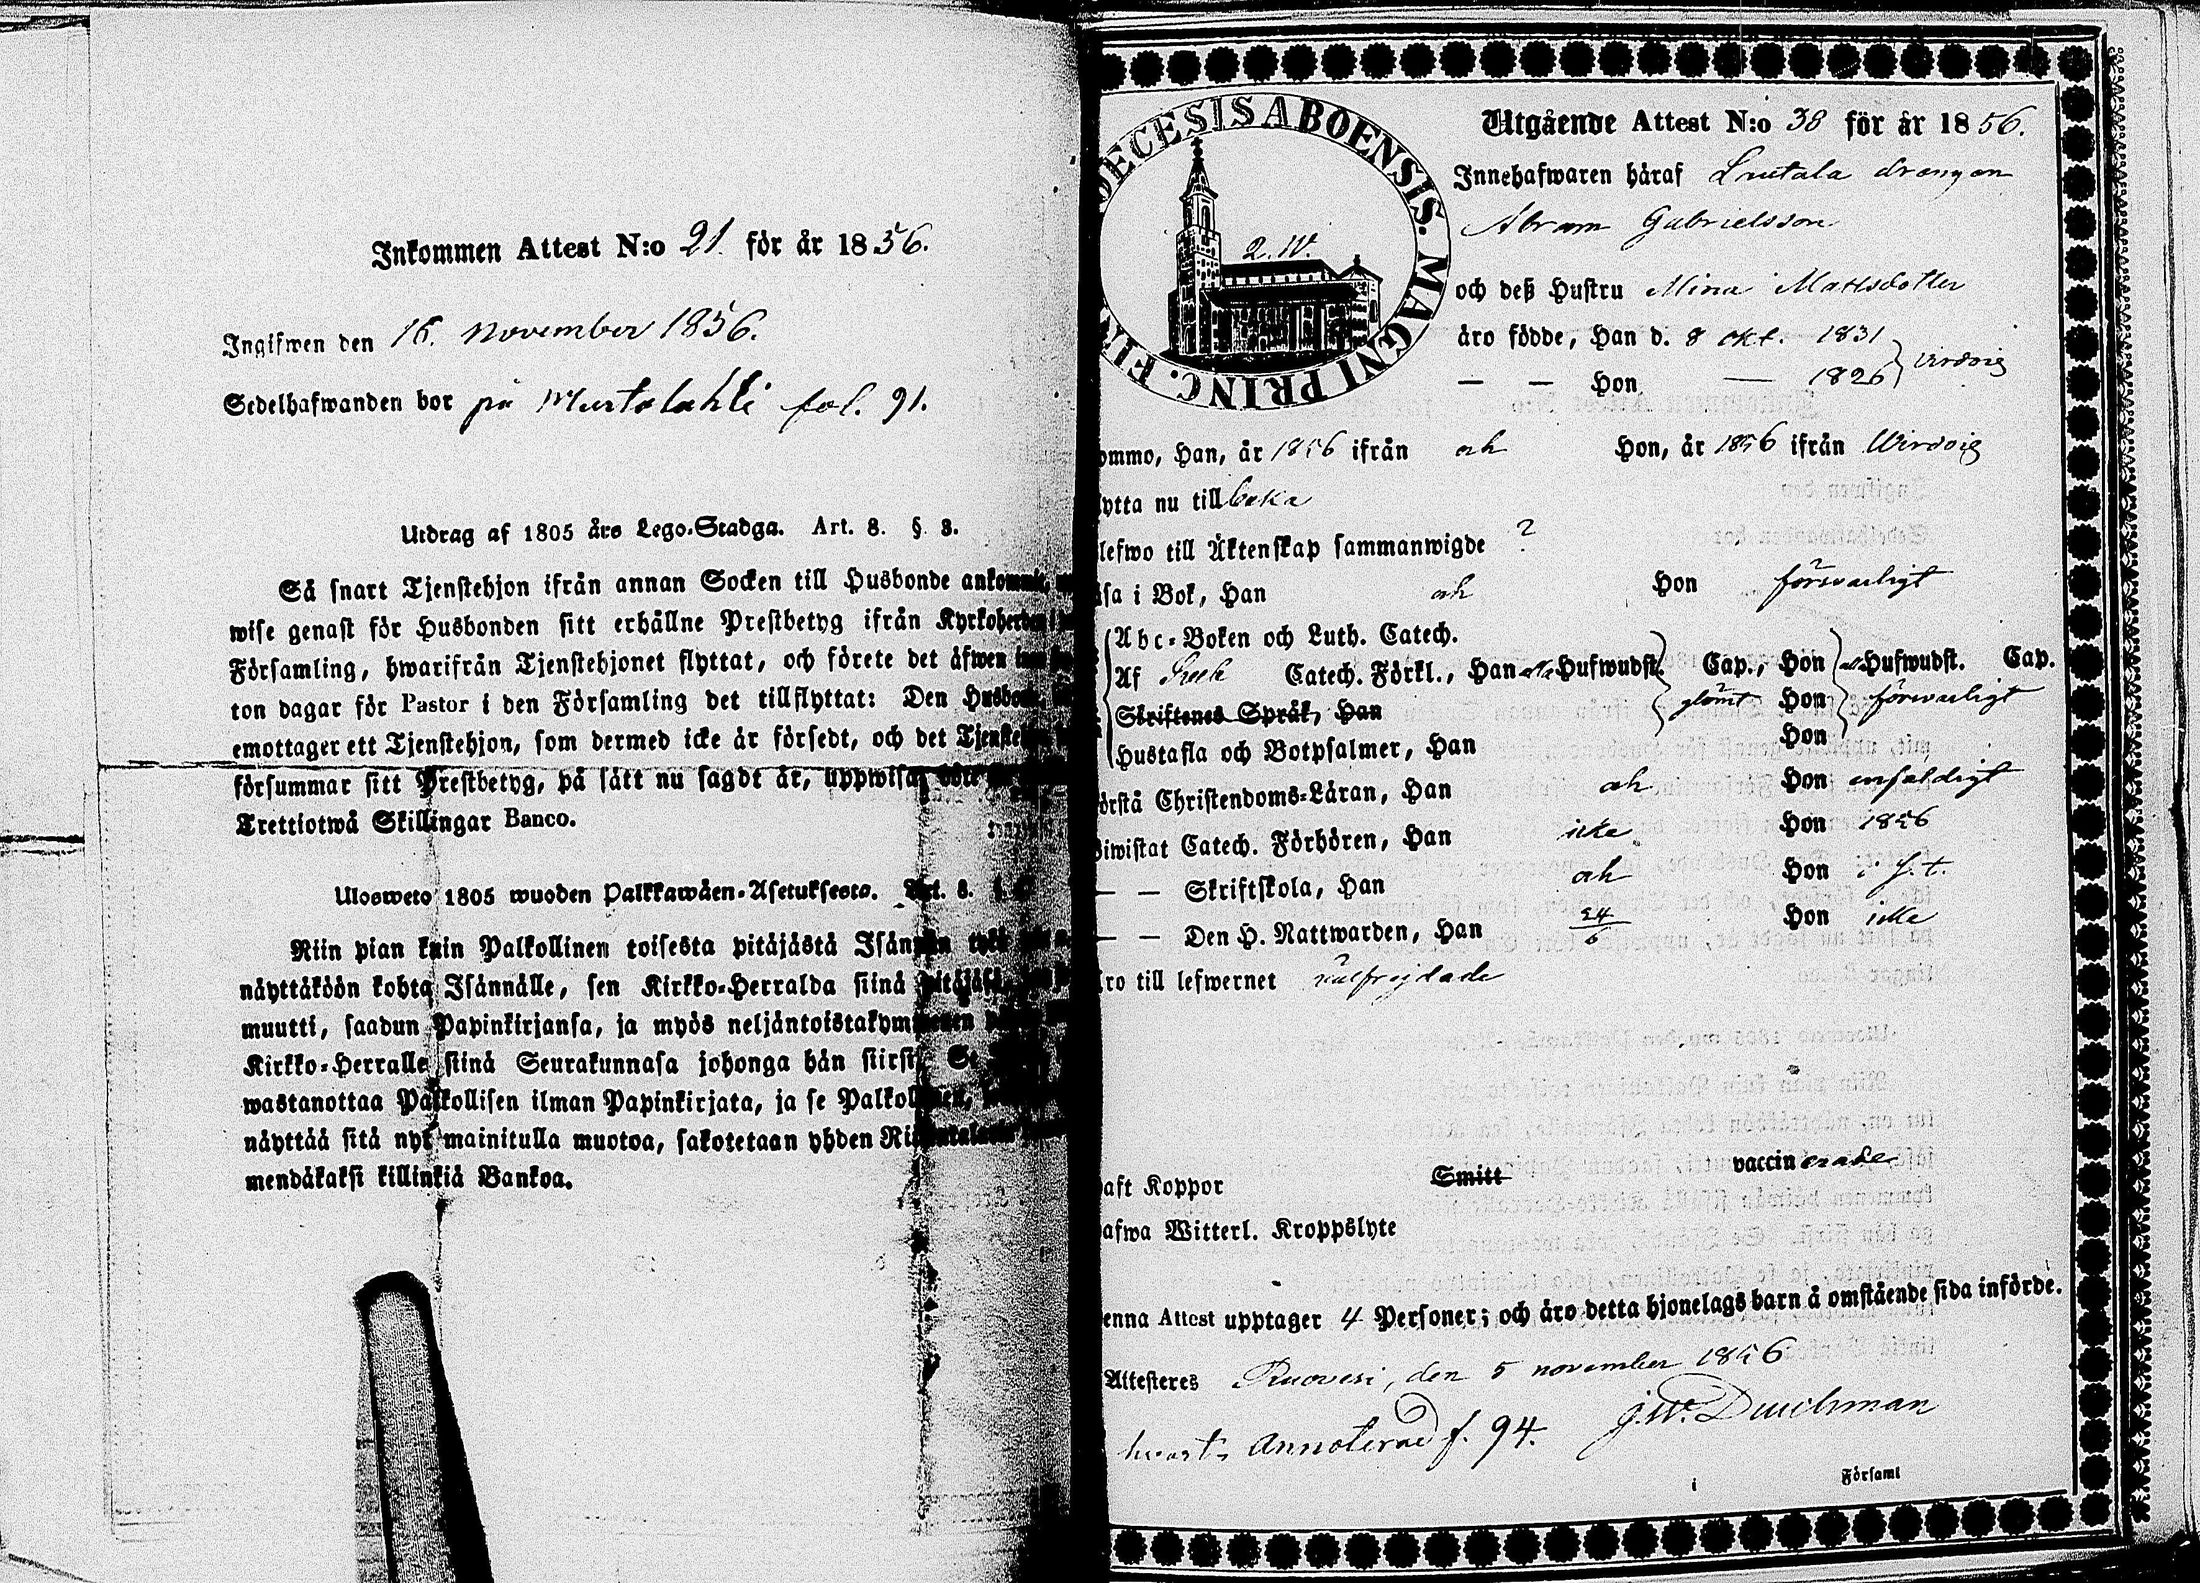 Inkommen Attest N:o 21. för år 1856.
Ingifwen den 16. November 1856.
Sedelhafwanden bor på Murtolahti fol. 91.
Utdrag af 1805 års Lego-Stadga. Art. 8. § 3.
Så snart Tjenstehjon ifrån annan Socken till Husbonde
wise genast för Husbonden sitt erhållne Prestbetyg ifrån
Församling, hwarifrån Tjenstehjonet flyttat, och förete det äfwen
ton dagar för Pastor i den Församling det tillflyttat: Den
emottager ett Tjenstehjon, som dermed icke är försedt, och det
försummar sitt Prestbetyg, på sätt nu sagdt är, uppwisa,
Trettiotwå Skillingar Banco.
Ulosweto 1805 wuoden Palkkawäen-Asetuksesta. Art. 8. §
Niin pian kuin Palkollinen toisesta pitäjästä
näyttäköön kohta Isännälle, sen Kirkko-Herralda siinä
muutti, saadun Papinkirjansa, ja myös
Kirkko-Herralle siinä Seurakunnasa johonga hän
wastanottaa Palkollisen ilman Papinkirjata, ja se
näyttää sitä nyt mainitulla muotoa, sakotetaan yhden
mendäkaksi killinkiä Bankoa.
DECESIS ABOENSIS. MAGNI PRINC. FIN
2. W.
Utgående Attest N:o 38 för år 1856.
Innehafwaren häraf drängen
Abram Gabrielsson
och deß Hustru Mina Mattsdotter
äro födde, Han d. 8 okt. 1831
— — Hon — 1826 } Wirdois
ommo, Han, år 1856 ifrån och Hon, år 1856 ifrån Wirdois
ytta nu tillbaka
lefwo till Äktenskap sammanwigde ?
sa i Bok, Han och Hon försvarligt
Abc-Boken och Luth. Catech.
Af Catech. Förkl., Han Hufwudst. Cap., Hon Hufwudst. Cap.
Skriftenes Språk, Han glömt Hon försvarligt
Hustafla och Botpsalmer, Han Hon
örstå Christendoms-Läran, Han och Hon enfaldigt
iwistat Catech. Förhören, Han icke Hon 1856
— — Skriftskola, Han och Hon i f. t.
— — Den H. Nattwarden, Han 24/6 Hon icke
ro till lefwernet välfrejdade
aft Koppor Smitt vaccinerade
afwa Witterl. Kroppslyte
enna Attest upptager 4 Personer; och äro detta hjonelags barn å omstående sida införde.
Attesteres Ruovesi, den 5 november 1856
J. W. Durchman
Annoterad f. 94.
i Församl